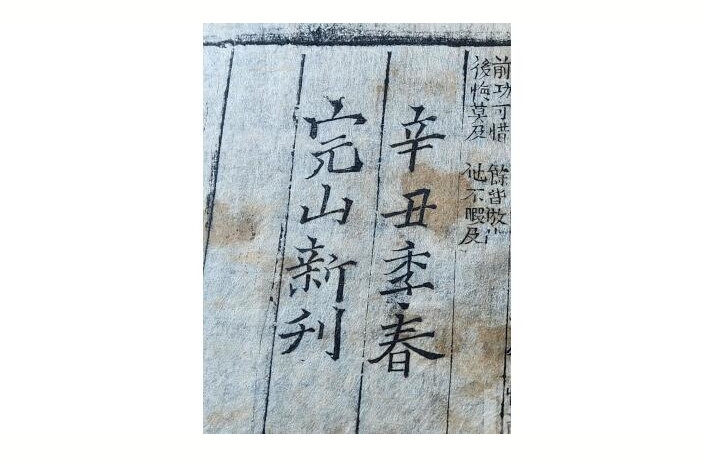 前功可惜
後悔莫及
餘皆倣此
他不暇及
辛丑季春
完山新刊